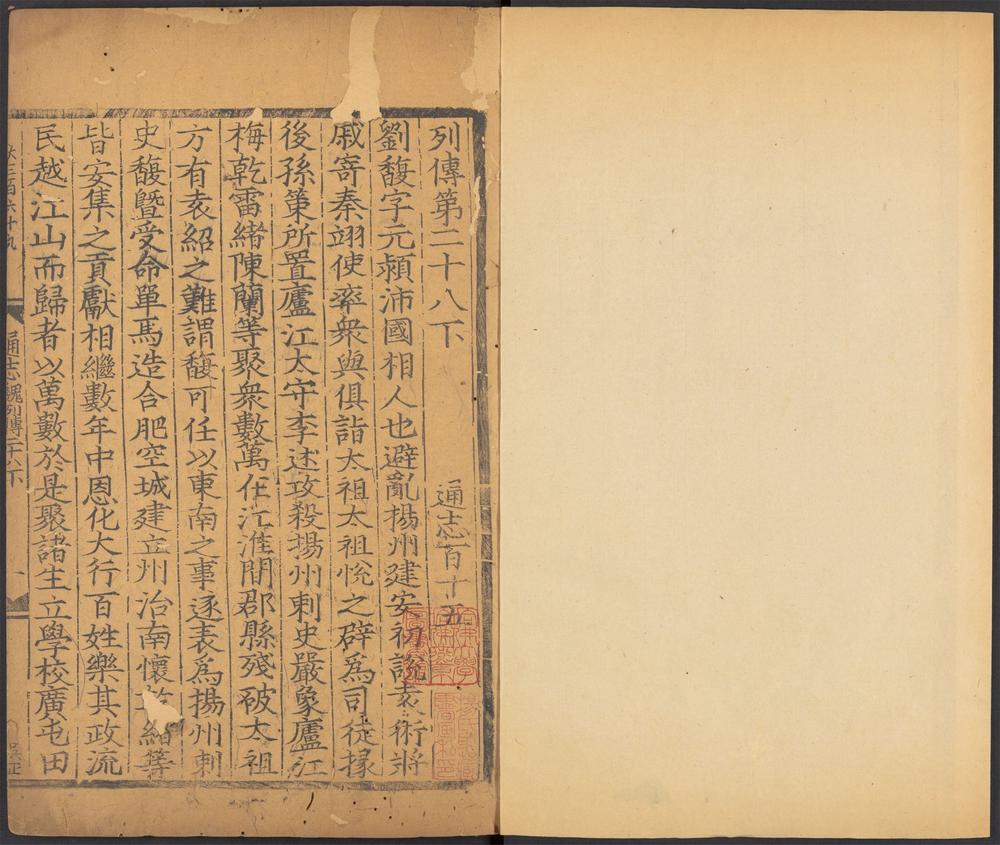 列傳第二十八下 通志百十五
劉馥字元潁沛國相人也避亂揚州建安初說袁術將
戚寄秦翊使率衆與俱詣太祖太祖悅之辟爲司徒掾
後孫策所置廬江太守李述攻殺揚州刺史嚴象廬江
梅乾雷緒陳蘭等聚衆數萬在江淮間郡縣殘破太祖
方有袁紹之難謂馥可任以東南之事遂表爲揚州刺
史馥曁受命單馬造合肥空城建立州治南懷緒等
皆安集之貢獻相繼數年中恩化大行百姓樂其政流
民越江山而歸者以萬數於是聚諸生立學校廣屯田
通志魏列傳二十八下